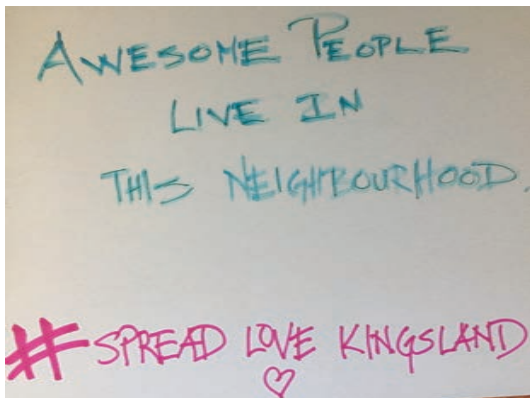 AWESOME PEOPLE
LIVE IN
THIS NEIGHBOURHOOD.
# SPREAD LOVE KINGSLAND